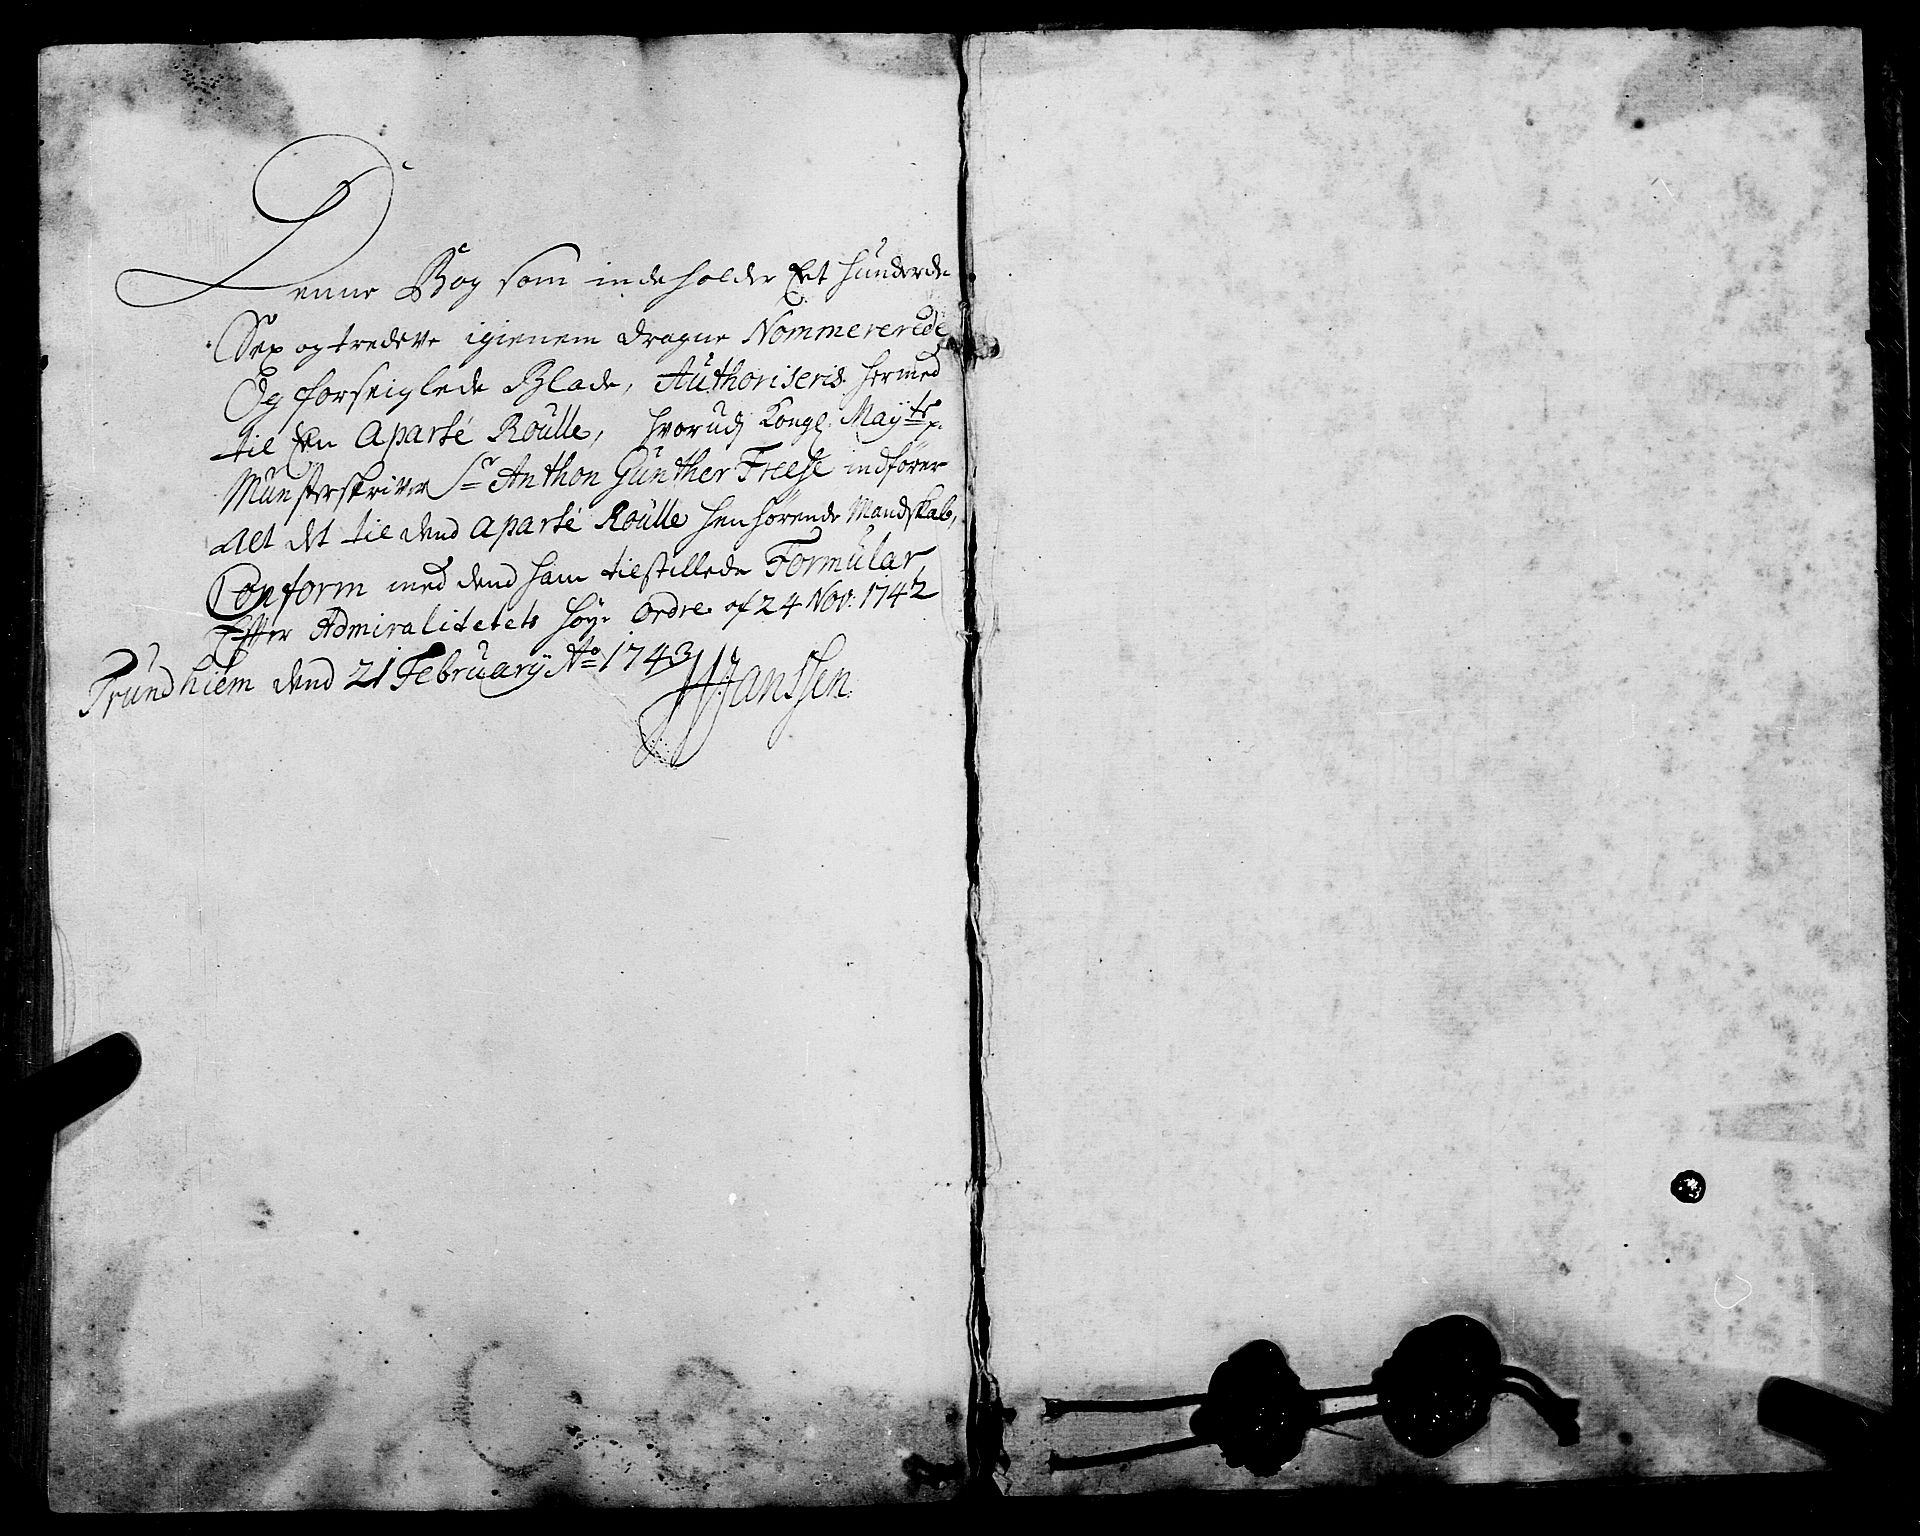 Denne Bog som indeholder Eet hunderde
Sex og tredeve igienem dragne Nommererede
Og forseiglede Blade, Authoriseris hermed
til En Aparte Roulle, hvorudj Kongl. May:ts
Münsterskriver Sr Anthon Günther Freese indfører
alt det til dend aparte Roulle henhørende Mandskab,
Conform med dend ham tilstillede Formular
Effter Admiralitetets høye Ordre af 24 Nov: 1742
Trundhiem dend 21 February Ao 1743
Janssen